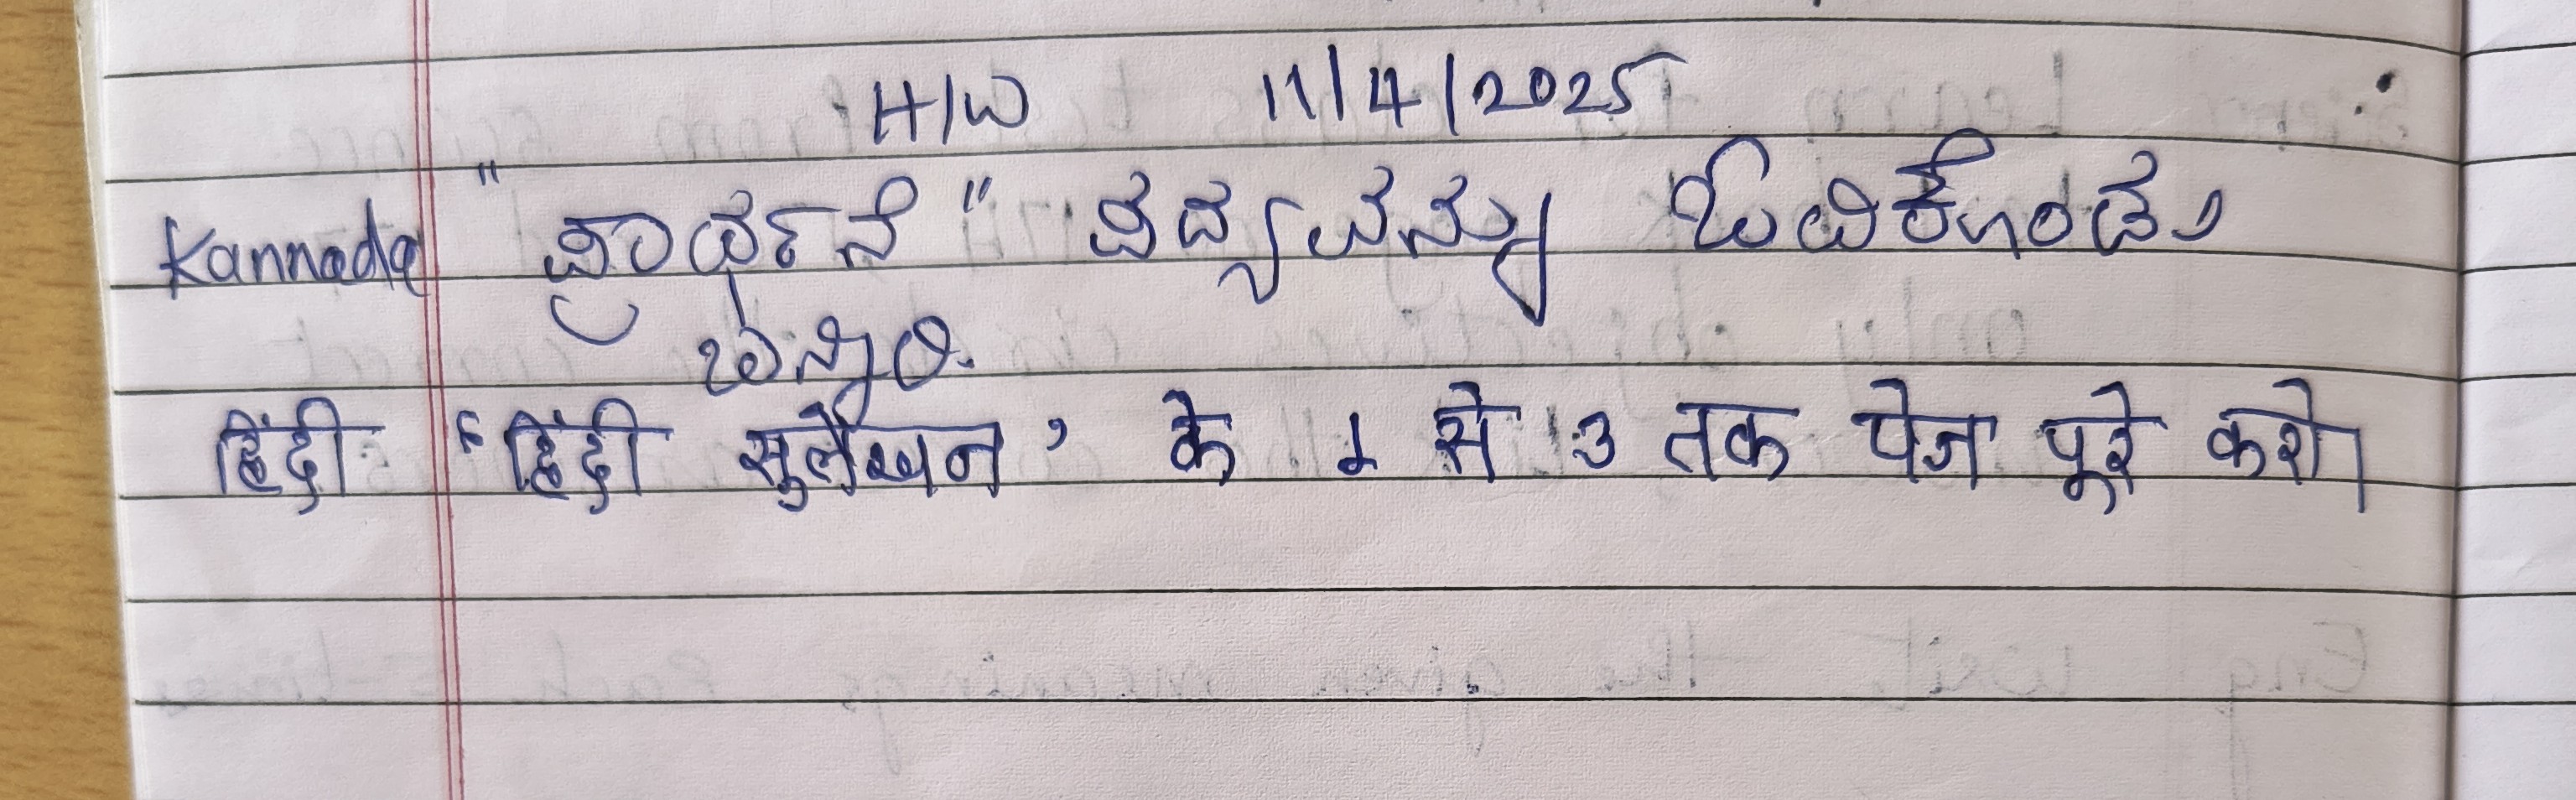 H/W 11/4/2025
Kannada "ಪ್ರಾರ್ಥನೆ" ಪದ್ಯವನ್ನು ಓದಿಕೊಂಡು
ಬನ್ನಿರಿ.
हिंदी "हिंदी सुलेखन' के 1 से 3 तक पेज पूरे करो।